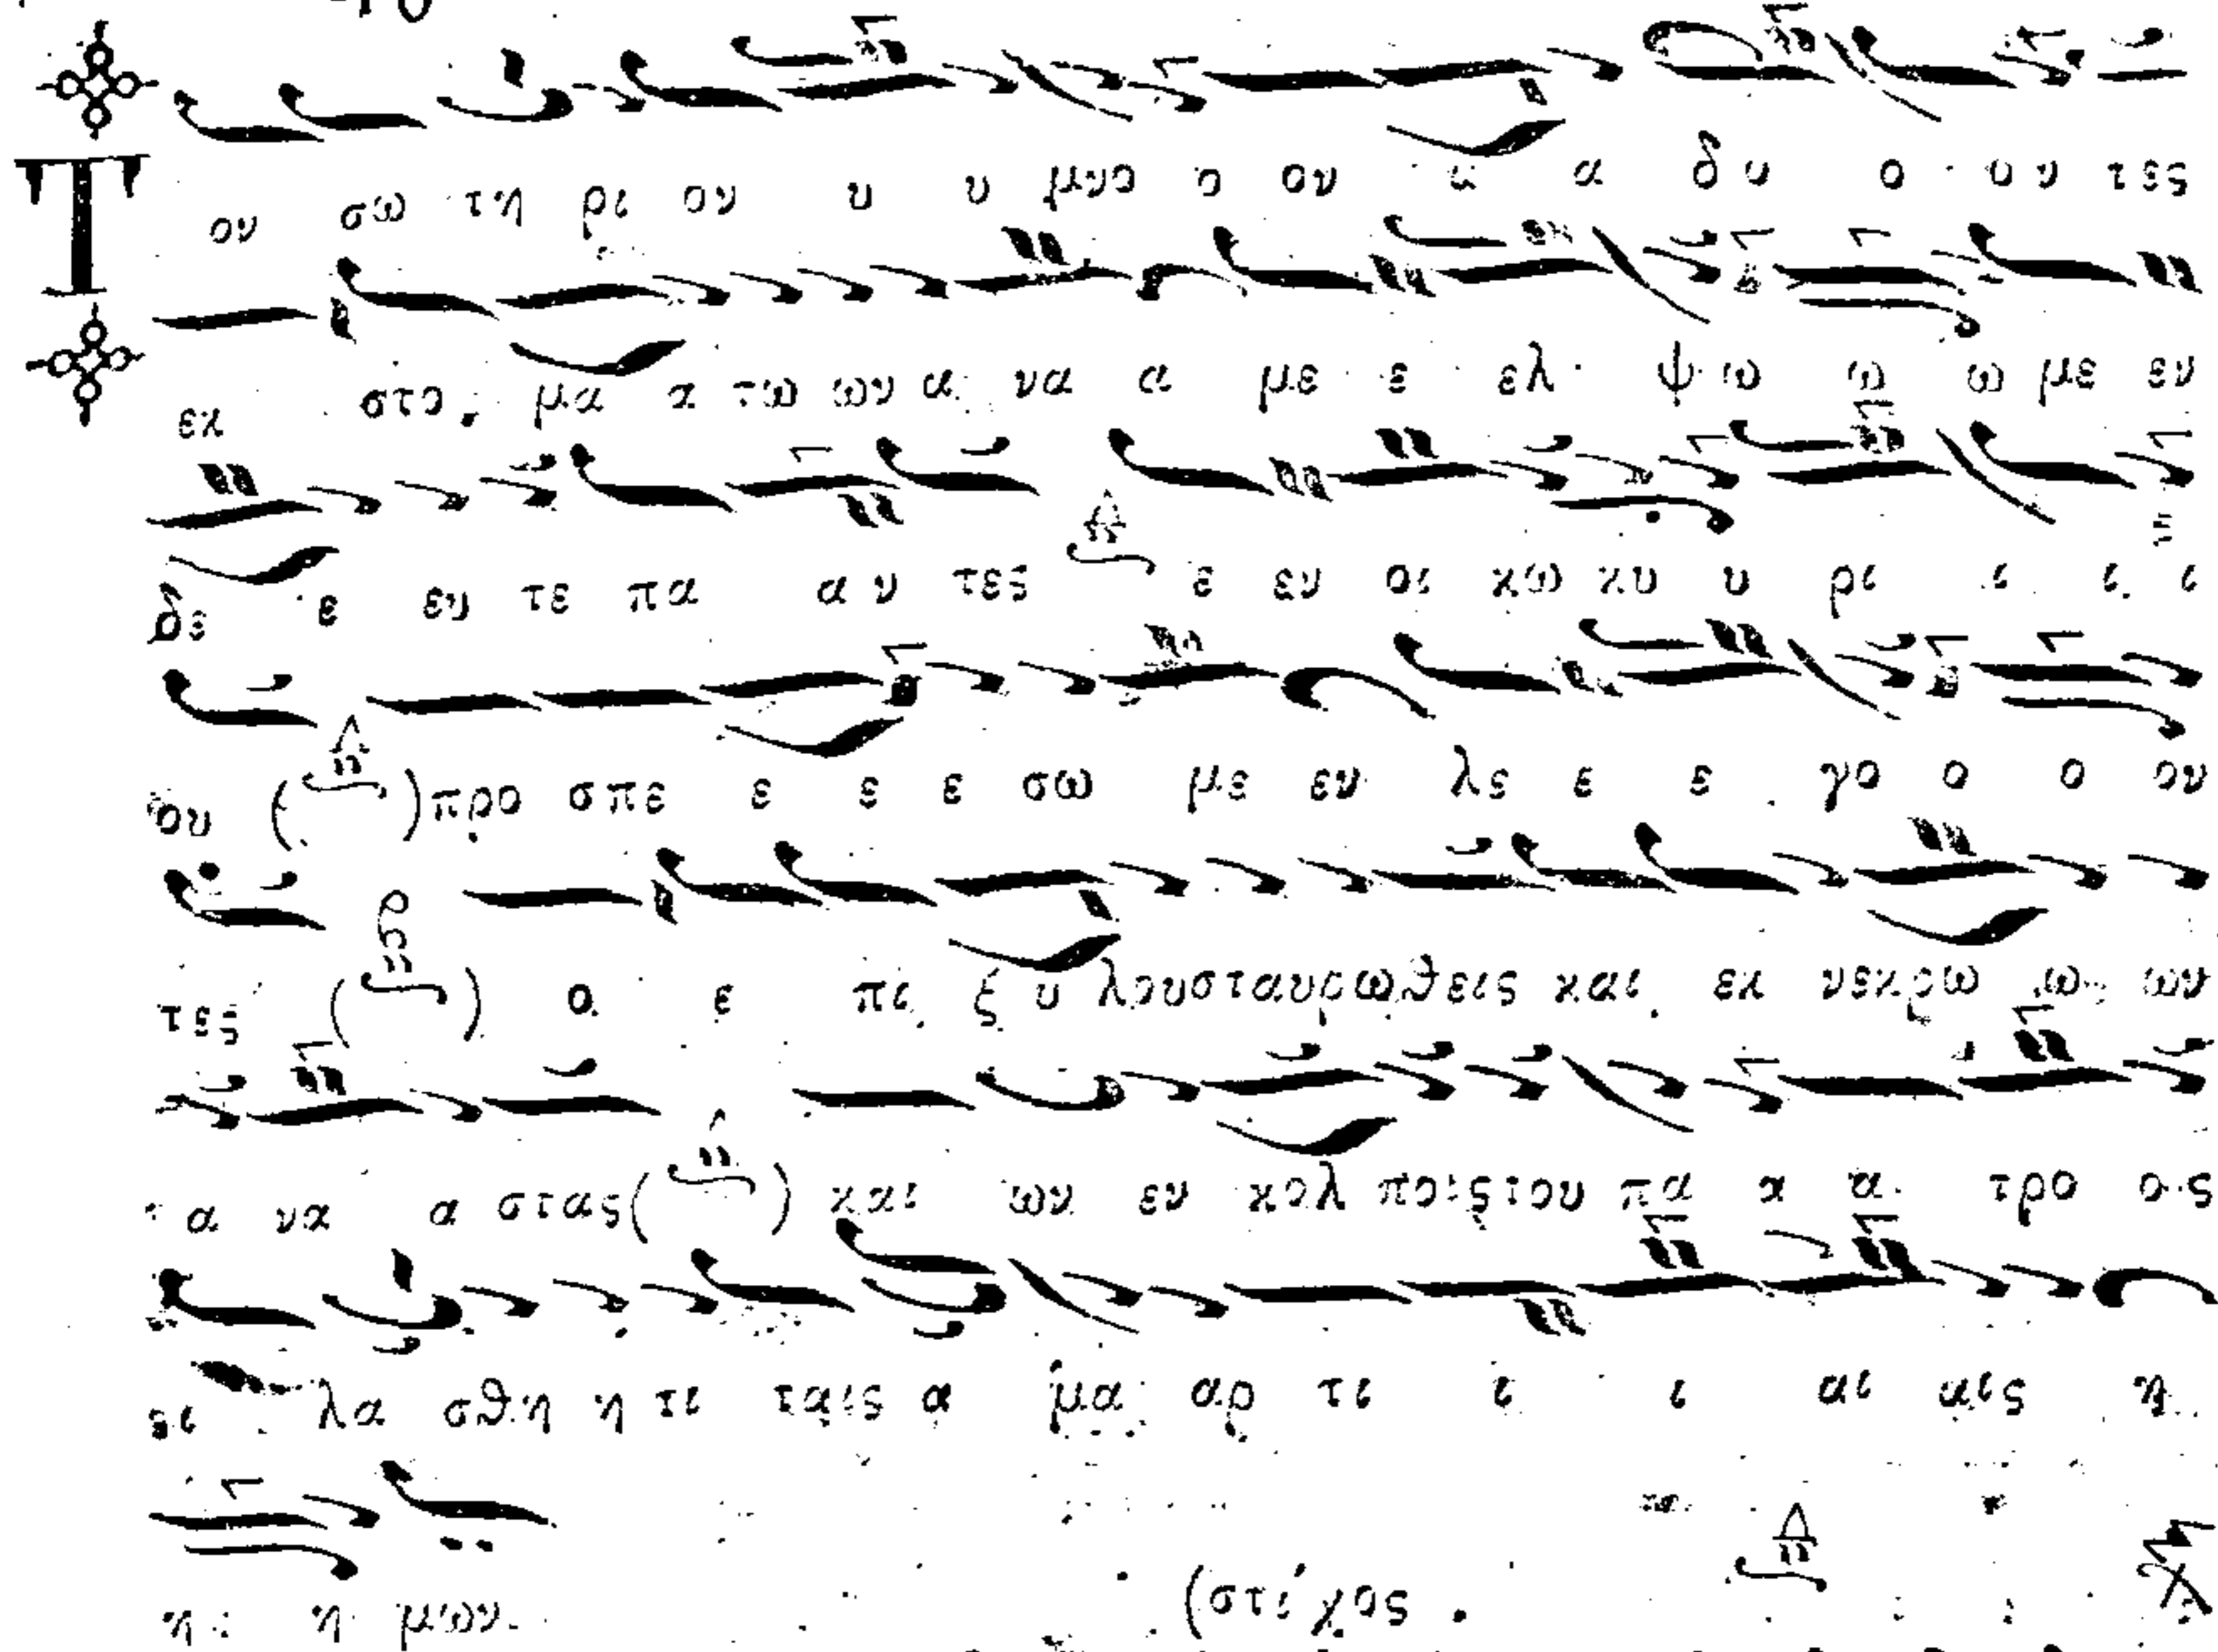 Τον σω τη ρι ον υ υ μνο ο ον α α δυ ο ον τες
εκ στο μα α τω ων α να α με ε ελ ψω ω ω με εν
δε ε εν τε πα αν τες ε εν οι κω κυ υ ρι ι ι ι
ου ( ) προ σπε ε ε ε σω με εν λε ε ε γο ο ο ον
τες ( ) ο ε πι ξυ λου σταυρωθεις και εκ νεκρω ω ων
α να α στας ( ) και ων εν κολ ποις του πα α α τρο ος
ει λα σθη η τι ταις α μα αρ τι ι ι αι αις η
η η μων. (στίχος.